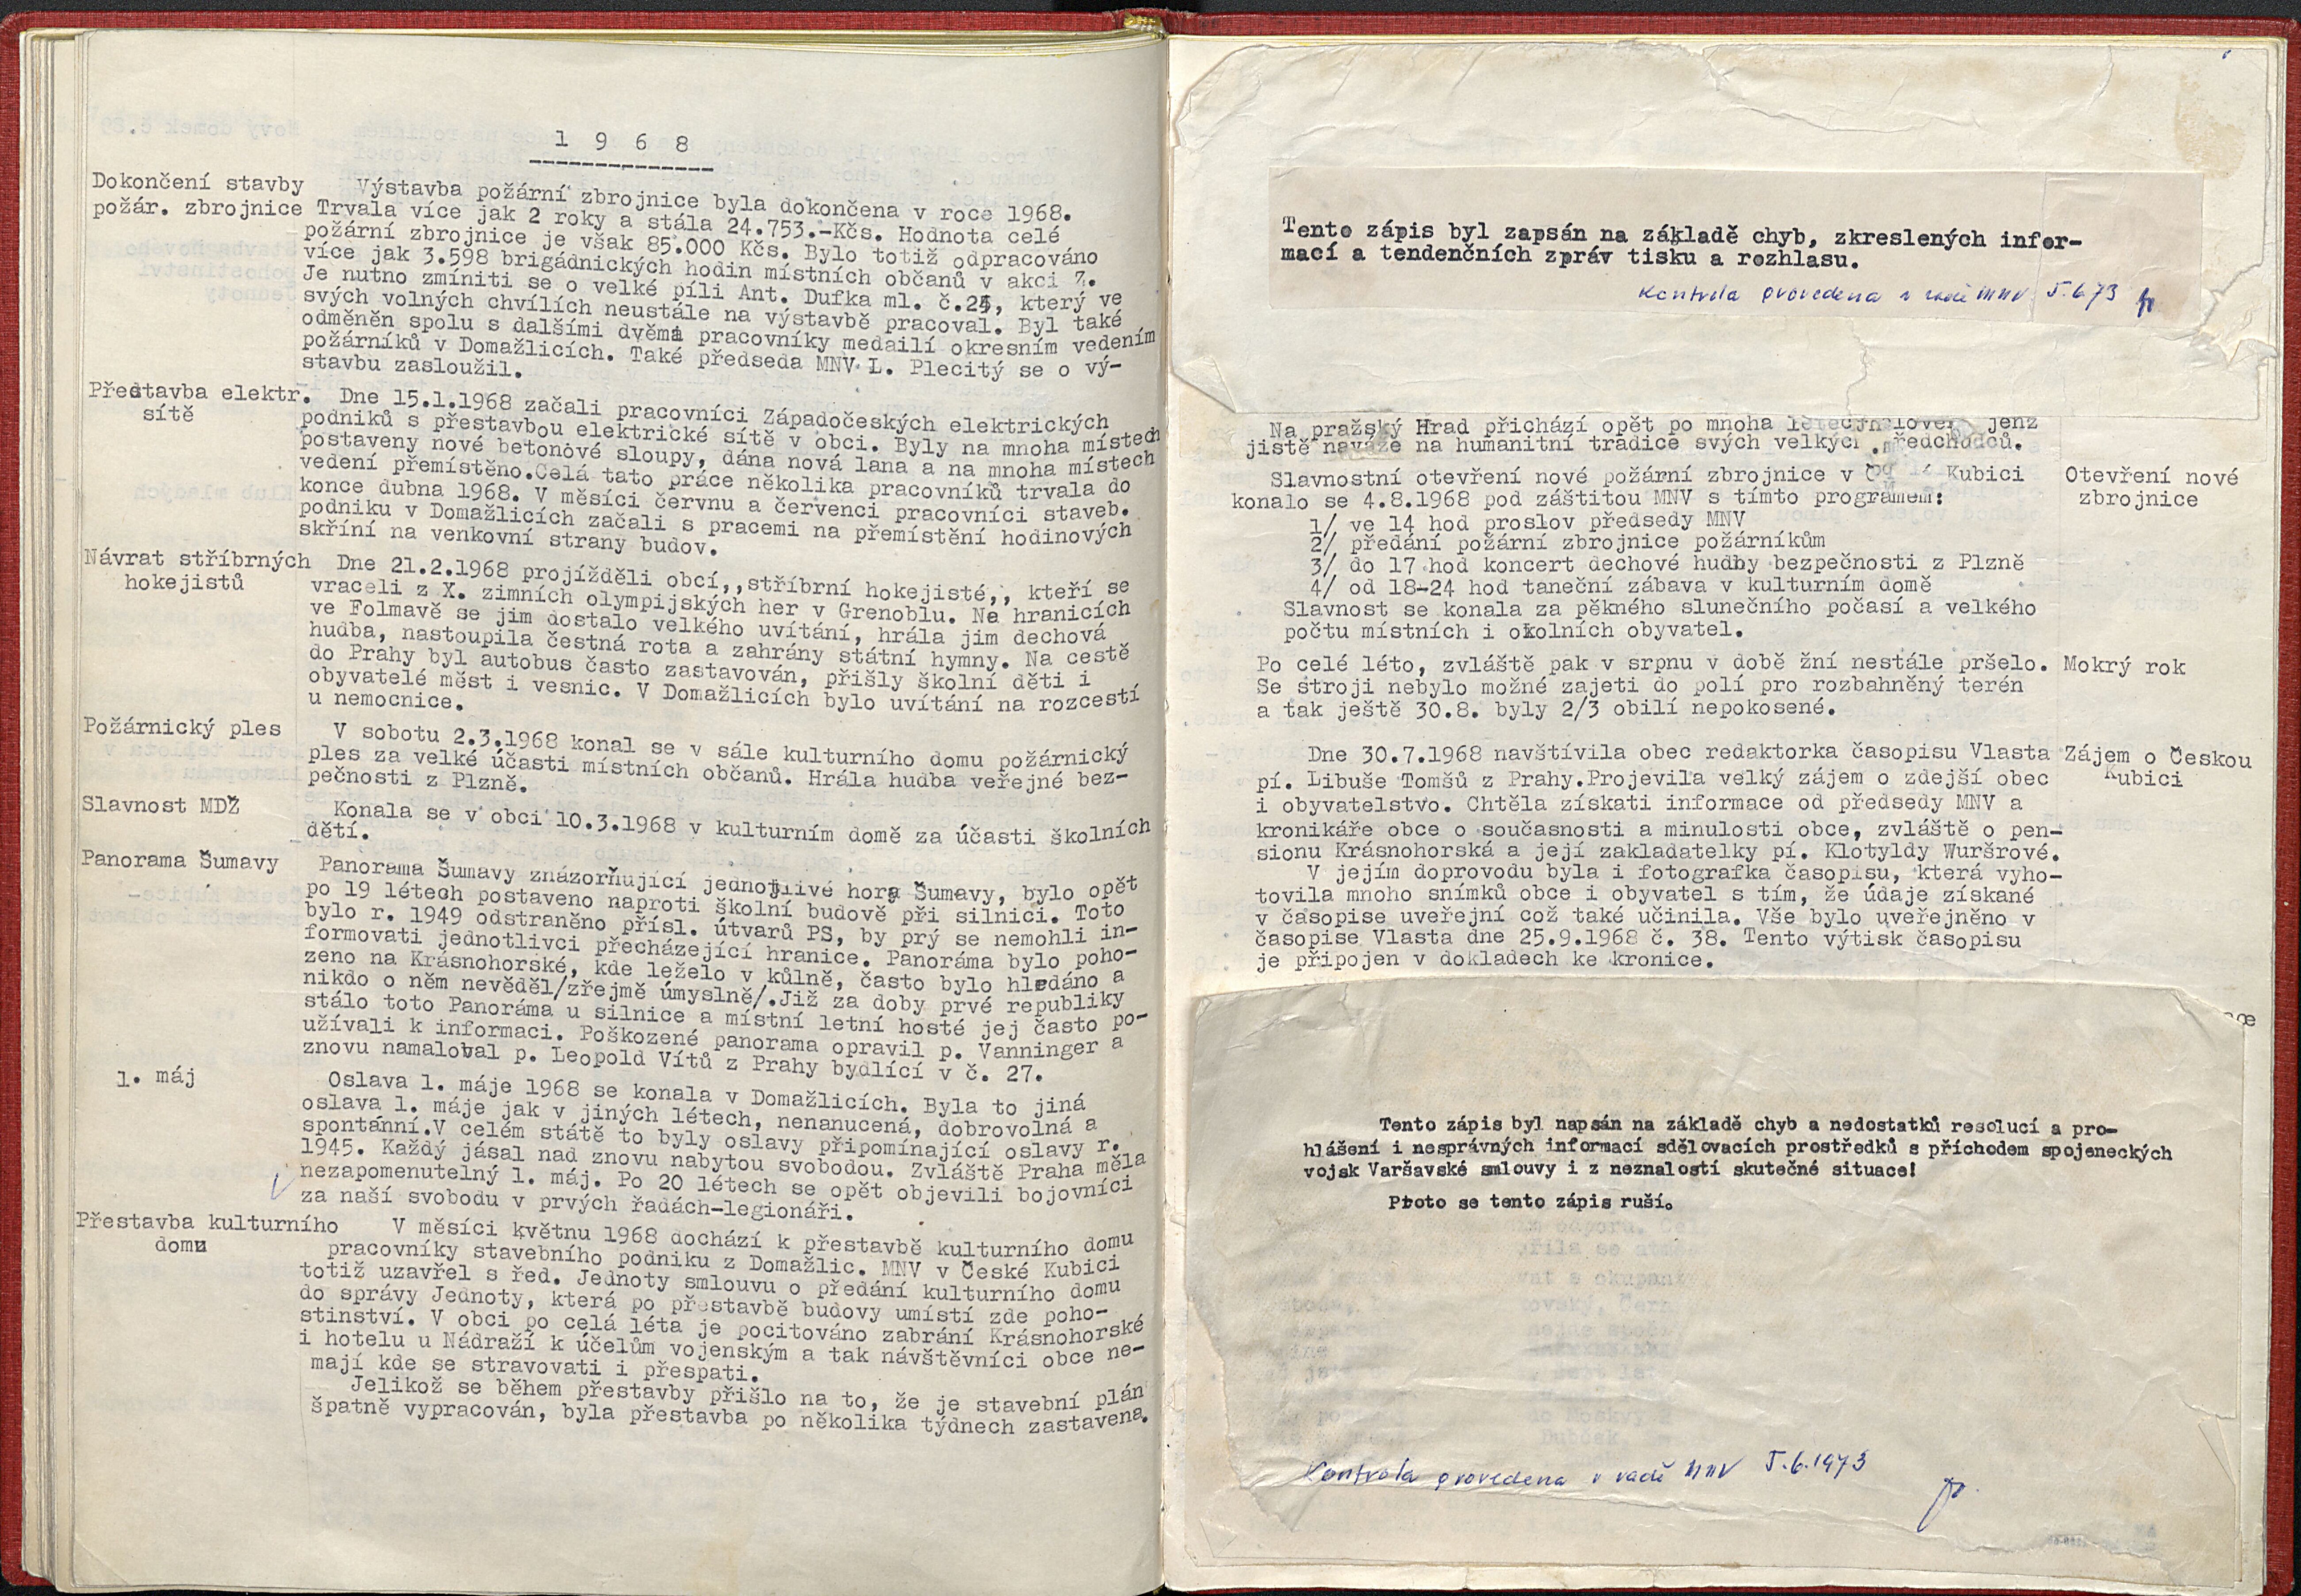 1 9 6 8
Dokončení stavby
požár. zbrojnice
Výstavba požární zbrojnice byla dokončena v roce 1968.
Trvala více jak 2 roky a stála 24.753.-Kčs. Hodnota celé
požární zbrojnice je však 85.000 Kčs. Bylo totiž odpracováno
více jak 3.598 brigádnických hodin místních občanů v akci Z.
Je nutno zmíniti se o velké píli Ant. Dufka ml. č., který ve
svých volných chvílích neustále na výstavbě pracoval. Byl také
odměněn spolu s dalšími dvěma pracovníky medailí okresním vedením
požárníků v Domažlicích. Také předseda MNV L. Plecitý se o vý-
stavbu zasloužil.
Přestavba elektr.
sítě
Dne 15.1.1968 začali pracovníci Západočeských elektrických
podniků s přestavbou elektrické sítě v obci. Byly na mnoha místech
postaveny nové betonové sloupy, dána nová lana a na mnoha místech
vedení přemístěno.Celá tato práce několika pracovníků trvala do
konce dubna 1968. V měsíci červnu a červenci pracovníci staveb.
podniku v Domažlicích začali s pracemi na přemístění hodinových
skříní na venkovní strany budov.
Návrat stříbrných
hokejistů
Dne 21.2.1968 projížděli obcí,,stříbrní hokejisté,, kteří se
vraceli z X. zimních olympijských her v Grenoblu. Na hranicích
ve Folmavě se jim dostalo velkého uvítání, hrála jim dechová
hudba, nastoupila čestná rota a zahrány státní hymny. Na cestě
do Prahy byl autobus často zastavován, přišly školní děti i
obyvatelé měst i vesnic. V Domažlicích bylo uvítání na rozcestí
u nemocnice.
Požárnický ples
V sobotu 2.3.1968 konal se v sále kulturního domu požárnický
ples za velké účasti místních občanů. Hrála hudba veřejné bez-
pečnosti z Plzně.
Slavnost MDŽ
Konala se v obci 10.3.1968 v kulturním domě za účasti školních
dětí.
Panorama Šumavy
Panorama Šumavy znázorňující jednotlivé hory Šumavy, bylo opět
po 19 létech postaveno naproti školní budově při silnici. Toto
bylo r. 1949 odstraněno přísl. útvarů PS, by prý se nemohli in-
formovati jednotlivci přecházející hranice. Panoráma bylo poho-
zeno na Krásnohorské, kde leželo v kůlně, často bylo hledáno a
nikdo o něm nevěděl/zřejmě úmyslně/.Již za doby prvé republiky
stálo toto Panoráma u silnice a místní letní hosté jej často po-
užívali k informaci. Poškozené panorama opravil p. Vanninger a
znovu namaloval p. Leopold Vítů z Prahy bydlící v č. 27.
1. máj
Oslava 1. máje 1968 se konala v Domažlicích. Byla to jiná
oslava 1. máje jak v jiných létech, nenanucená, dobrovolná a
spontánní.V celém státě to byly oslavy připomínající oslavy r.
1945. Každý jásal nad znovu nabytou svobodou. Zvláště Praha měla
nezapomenutelný 1. máj. Po 20 létech se opět objevili bojovníci
za naší svobodu v prvých řadách-legionáři.
Přestavba kulturního
domu
V měsíci květnu 1968 dochází k přestavbě kulturního domu
pracovníky stavebního podniku z Domažlic. MNV v České Kubici
totiž uzavřel s řed. Jednoty smlouvu o předání kulturního domu
do správy Jednoty, která po přestavbě budovy umístí zde poho-
stinství. V obci po celá léta je pocitováno zabrání Krásnohorské
i hotelu u Nádraží k účelům vojenským a tak návštěvníci obce ne-
mají kde se stravovati i přespati.
Jelikož se během přestavby přišlo na to, že je stavební plán
špatně vypracován, byla přestavba po několika týdnech zastavena.
Tento zápis byl zapsán na základě chyb, zkreslených infor-
mací a tendenčních zpráv tisku a rozhlasu.
Kontrola provedena v radě MNV 5.6.73
Na pražský Hrad přichází opět po mnoha jenž
jistě naváže na humanitní tradice svých velkých předchůdců.
Slavnostní otevření nové požární zbrojnice v Kubici
konalo se 4.8.1968 pod záštitou MNV s tímto programem:
1/ ve 14 hod proslov předsedy MNV
2/ předání požární zbrojnice požárníkům
3/ do 17 hod koncert dechové hudby bezpečnosti z Plzně
4/ od 18-24 hod taneční zábava v kulturním domě
Slavnost se konala za pěkného slunečního počasí a velkého
počtu místních i okolních obyvatel.
Otevření nové
zbrojnice
Po celé léto, zvláště pak v srpnu v době žní nestále pršelo.
Se stroji nebylo možné zajeti do polí pro rozbahněný terén
a tak ještě 30.8. byly 2/3 obilí nepokosené.
Mokrý rok
Dne 30.7.1968 navštívila obec redaktorka časopisu Vlasta
pí. Libuše Tomšů z Prahy.Projevila velký zájem o zdejší obec
i obyvatelstvo. Chtěla získati informace od předsedy MNV a
kronikáře obce o současnosti a minulosti obce, zvláště o pen-
sionu Krásnohorská a její zakladatelky pí. Klotyldy Wuršrové.
V jejím doprovodu byla i fotografka časopisu, která vyho-
tovila mnoho snímků obce i obyvatel s tím, že údaje získané
v časopise uveřejní což také učinila. Vše bylo uveřejněno v
časopise Vlasta dne 25.9.1968 č. 38. Tento výtisk časopisu
je připojen v dokladech ke kronice.
Zájem o Českou
Kubici
Tento zápis byl napsán na základě chyb a nedostatků resolucí a pro-
hlášení i nesprávných informací sdělovacích prostředků s příchodem spojeneckých
vojsk Varšavské smlouvy i z neznalostí skutečné situace!
Proto se tento zápis ruší.
Kontrola provedena v radě MNV 5.6.1973